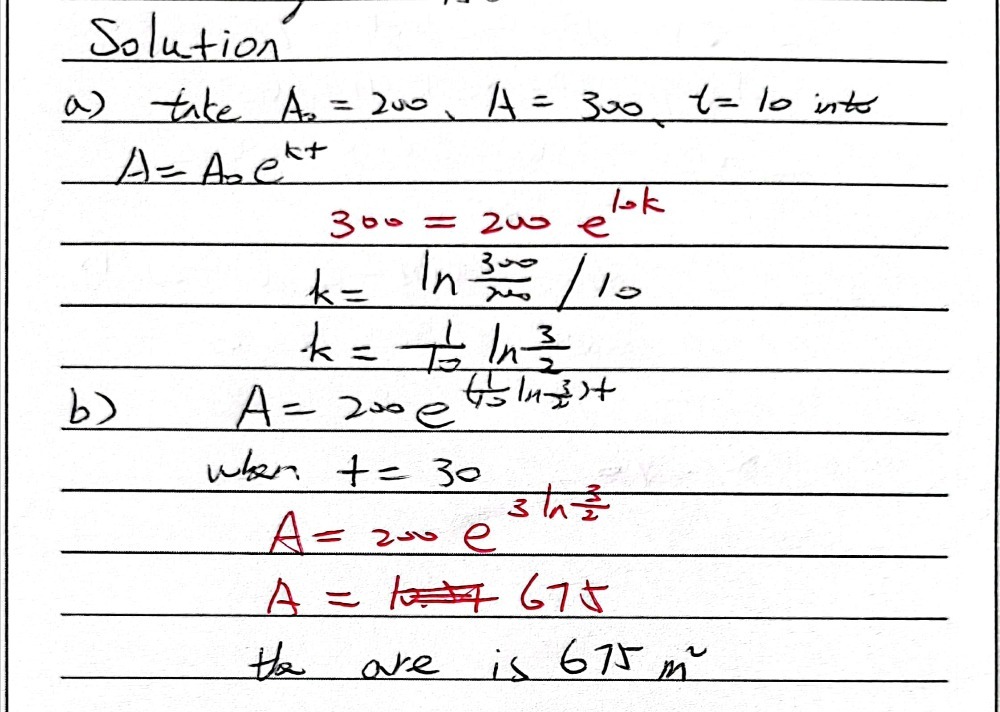 Solution
a) take A₀ = 200、A = 300、t = 10 into
A = A₀ e^{kt}
300 = 200 e^{10k}
k = ln \frac{300}{200} / 10
k = \frac{1}{10} ln \frac{3}{2}
b) A = 200 e^{(\frac{1}{10} ln \frac{3}{2})t}
when t = 30
A = 200 e^{3 ln \frac{3}{2}}
A = 675
the are is 675 m²